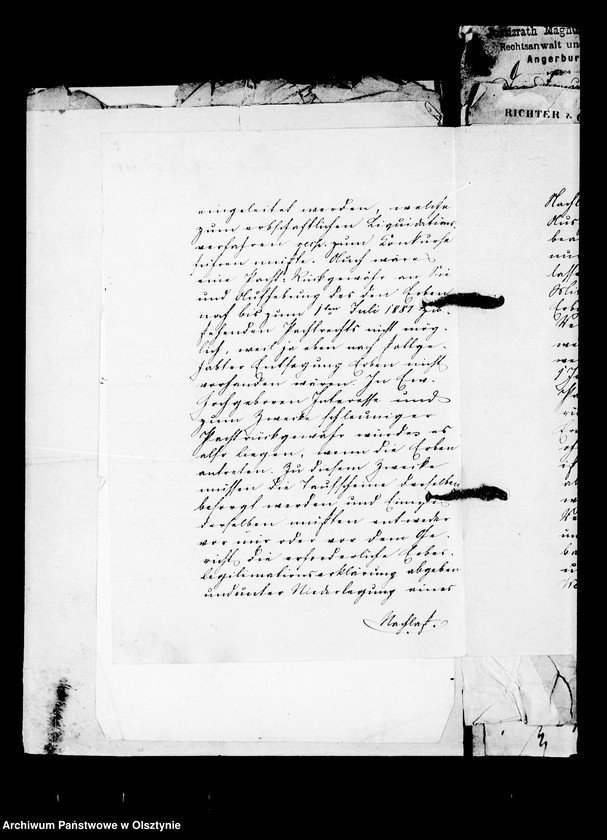 Justizrath Magnu
Rechtsanwalt un
Angerbur
RICHTER
eingeleitet werden, welche
zum erbschaftlichen Liquidations-
verfahren resp. zum Konkurse
führen müßte. Auch wäre
eine Pacht-Rückgewähr an Sie
und Aufhebung des den Erben
noch bis zum 1ten Juli 1881 zu-
stehenden Pachtrechts nicht mög-
lich, weil ja eben nach stattge-
habter Entsagung Erben nicht
vorhanden wären. In Ew.
Hochgeboren Interesse und
zum Zwecke schleuniger
Pachtrückgewähr würde es
also liegen, wenn die Erben
antreten. Zu diesem Zwecke
müssen die Taufscheine derselben
besorgt werden und Einer
derselben müßten entweder
vor mir oder vor dem Ge-
richt die erforderliche Erbes-
legitimationserklärung abgeben
und unter Niederlegung eines
Nachlaß-
Archiwum Państwowe w Olsztynie